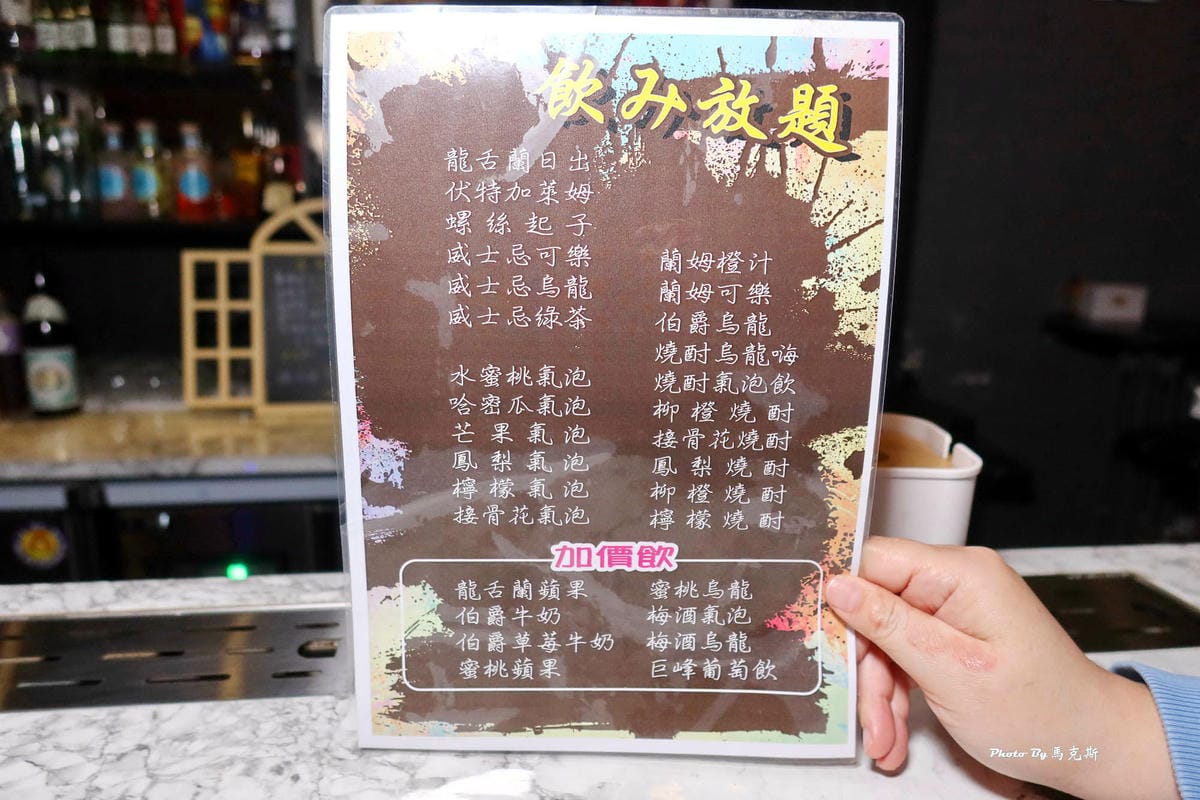 飲み放題
龍舌蘭日出
伏特加萊姆
螺絲起子
威士忌可樂
威士忌烏龍
威士忌綠茶
水蜜桃氣泡
哈密瓜氣泡
芒果氣泡
鳳梨氣泡
檸檬氣泡
接骨花氣泡
蘭姆橙汁
蘭姆可樂
伯爵烏龍
燒酎烏龍嗨
燒酎氣泡飲
柳橙燒酎
接骨花燒酎
鳳梨燒酎
柳橙燒酎
檸檬燒酎
加價飲
龍舌蘭蘋果
伯爵牛奶
伯爵草莓牛奶
蜜桃蘋果
蜜桃烏龍
梅酒氣泡
梅酒烏龍
巨峰葡萄飲
Photo By 馬克斯